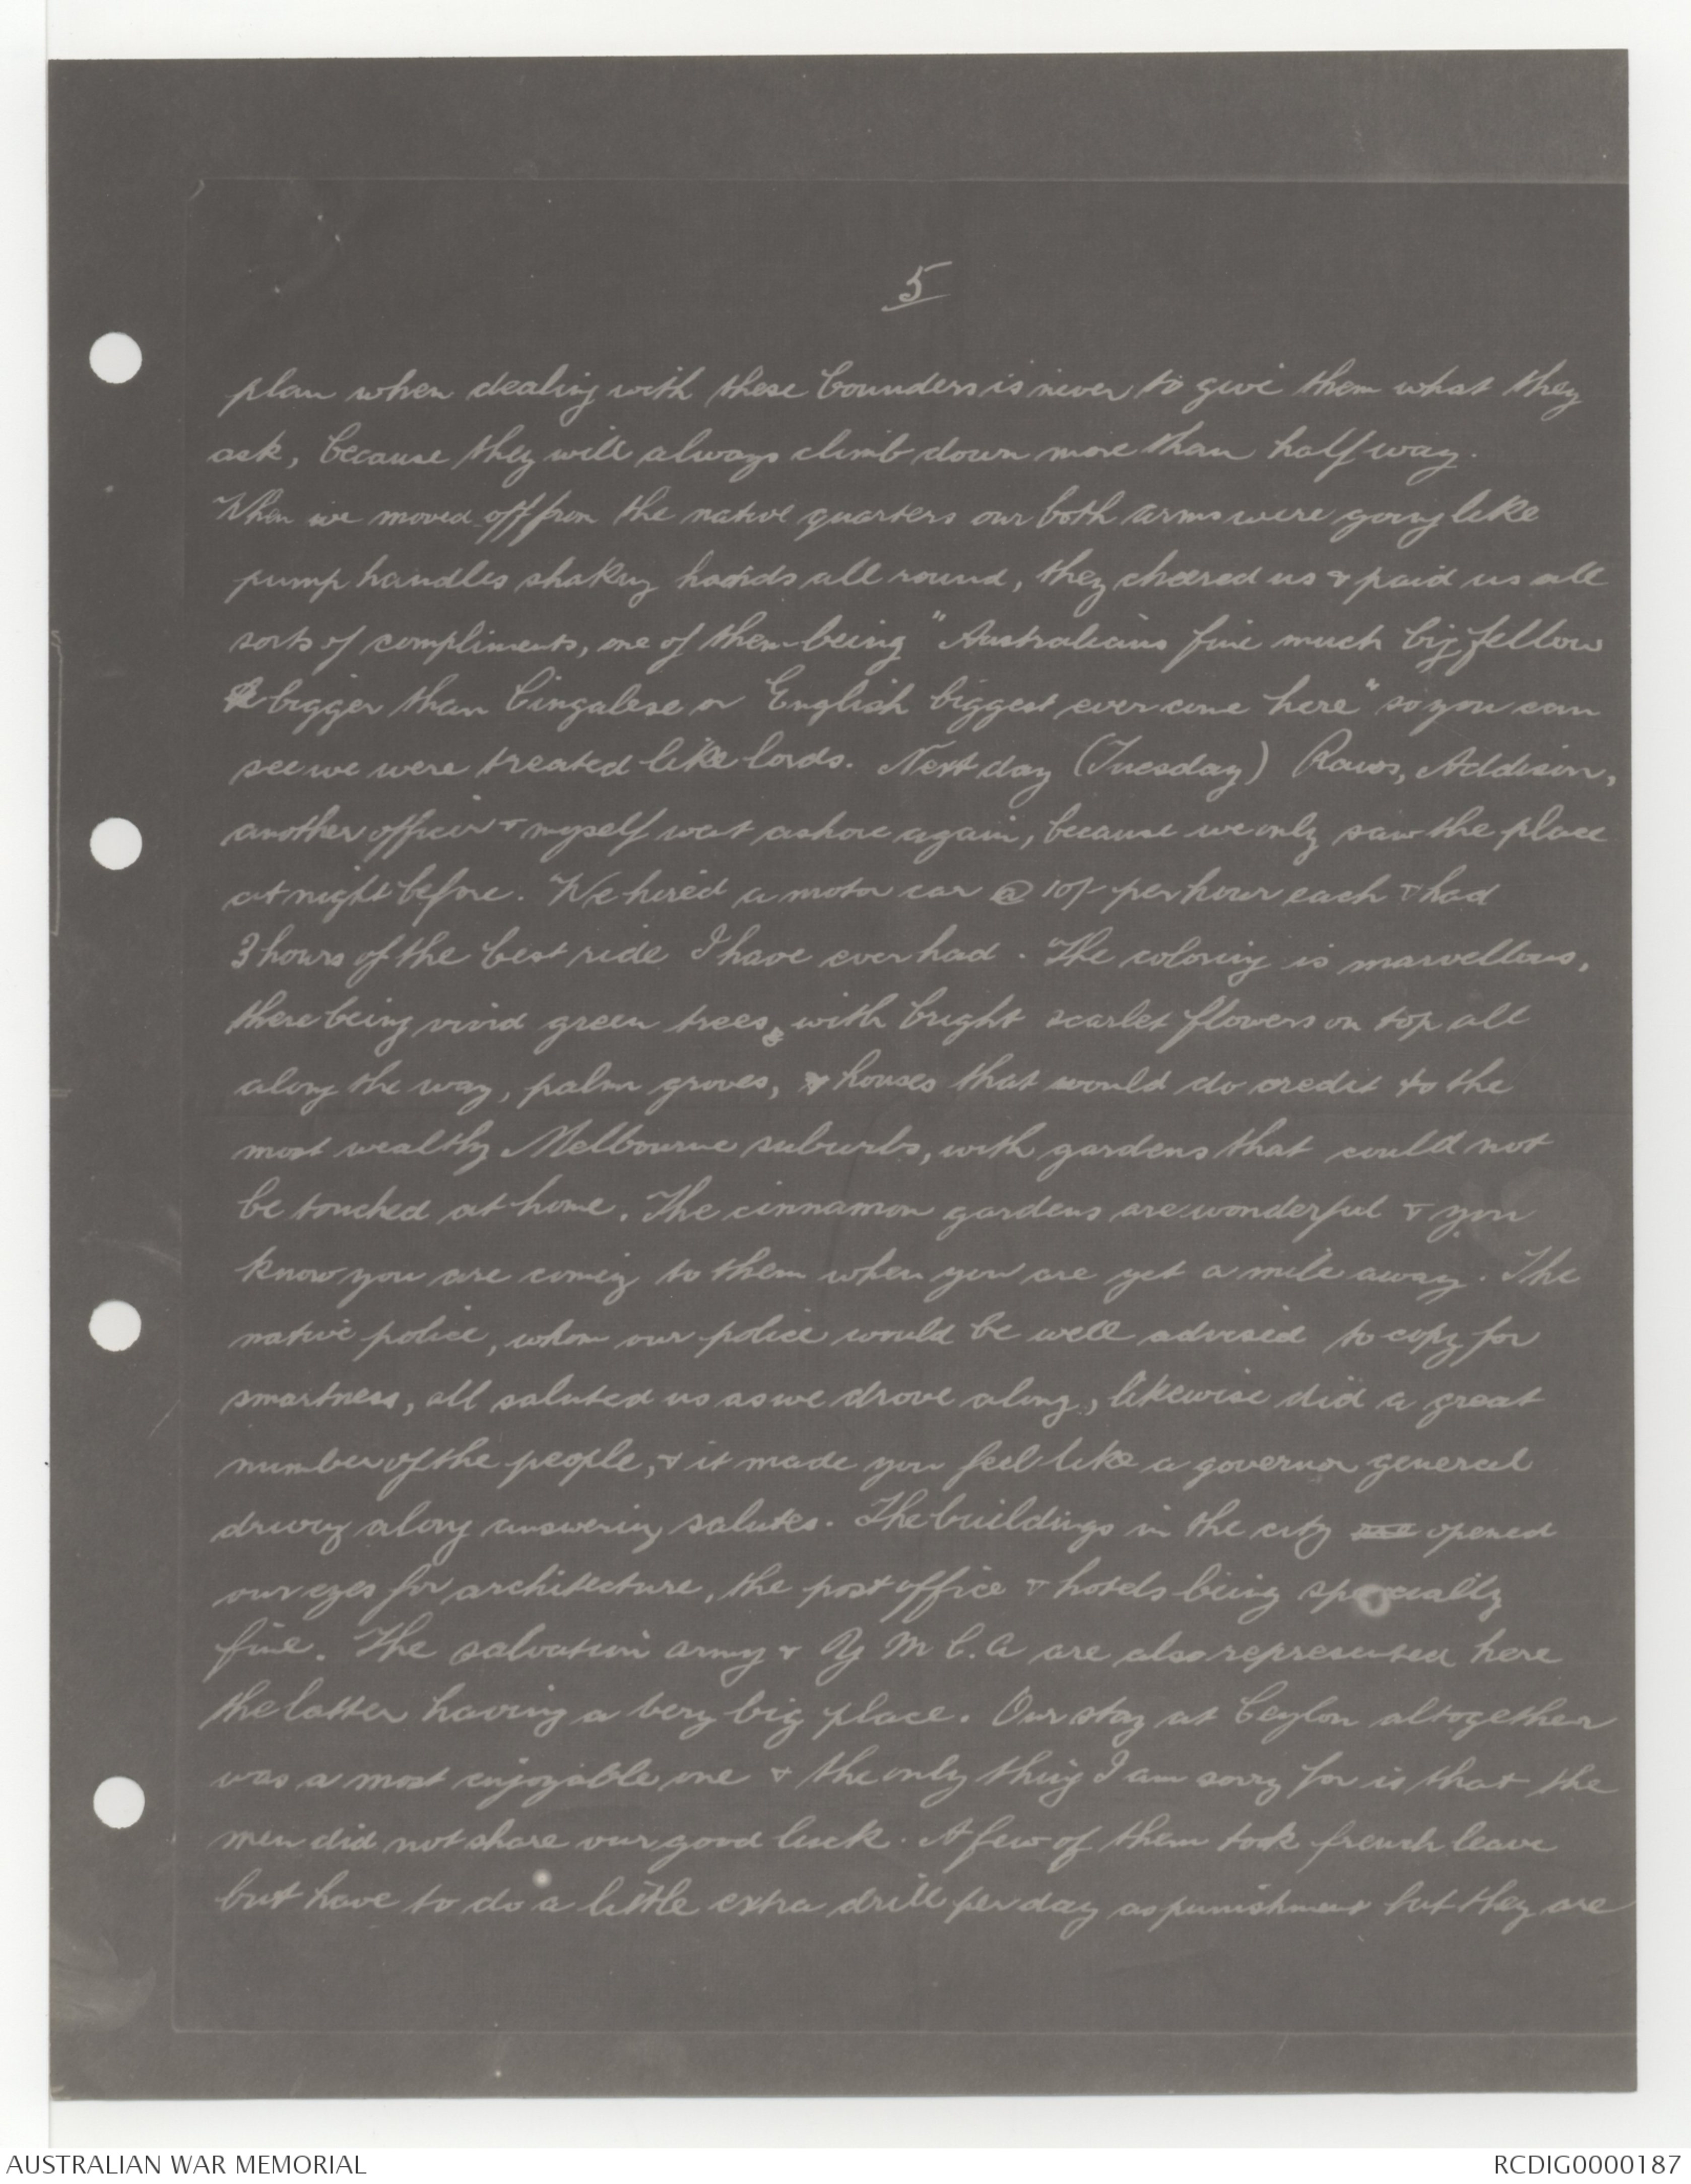 5
plan when dealing with these bounders is never to give them what they
ask, because they will always climb down more than half way.
When we moved off from the native quarters our both arms were going like
pump handles shaking hands all round, they cheered us & paid us all
sorts of compliments, one of them being "Australians fine much big fellow
bigger than Cingalese or English biggest ever come here" so you can
see we were treated like lords. Next day (Tuesday) Raws, Addison,
another officer & myself went ashore again, because we only saw the place
at night before. We hired a motor car @ 10/- per hour each & had
3 hours of the best ride I have ever had. The coloring is marvellous,
there being vivid green trees, with bright scarlet flowers on top all
along the way, palm groves, & houses that would do credit to the
most wealthy Melbourne suburbs, with gardens that could not
be touched at home. The cinnamon gardens are wonderful & you
know you are coming to them when you are yet a mile away. The
native police, whom our police would be well advised to copy for
smartness, all saluted us as we drove along, likewise did a great
number of the people, & it made you feel like a governor general
driving along answering salutes. The buildings in the city opened
our eyes for architecture, the post office & hotels being specially
fine. The salvation army & Y M C. A are also represented here
the latter having a very big place. Our stay at Ceylon altogether
was a most enjoyable one & the only thing I am sorry for is that the
men did not share our good luck. A few of them took french leave
but have to do a little extra drill per day as punishment but they are
AUSTRALIAN WAR MEMORIAL
RCDIG0000187